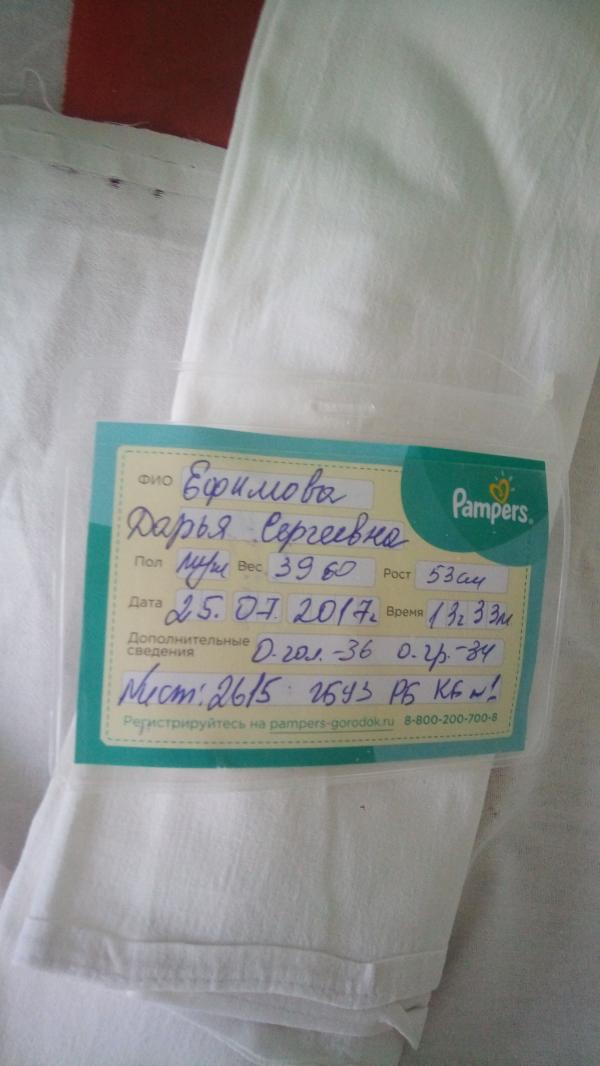 ФИО Ефимова
Pampers®
Дарья Сергеевна
Пол муж Вес 3960 Рост 53см
Дата 25. 07. 2017г Время 13ч 33м
Дополнительные
сведения О.гол.-36 о.гр.-34
№ист: 2615 ГБУЗ РБ КБ №1
Регистрируйтесь на pampers-gorodok.ru 8-800-200-700-8